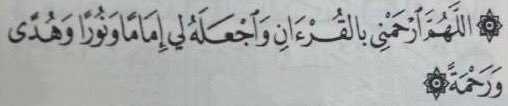 ۞ اللَّهُمَّ ٱرْحَمْنِي بِالْقُرْءَانِ وَٱجْعَلْهُ لِي إِمَامًا وَنُورًا وَهُدًى
وَرَحْمَةً ۞